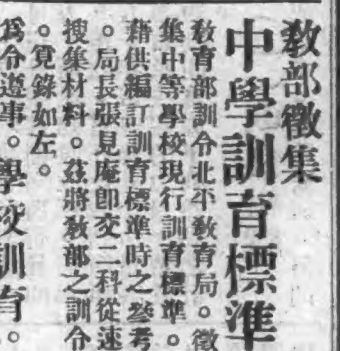 教部徵集
中學訓育標準
教育部訓令北平教育局。徵
集中等學校現行訓育標準。
藉供編訂訓育標準時之參考
。局長張見庵卽交二科從速
搜集材料。茲將教部之訓令
。覓錄如左。
爲令遵事。學校訓育。